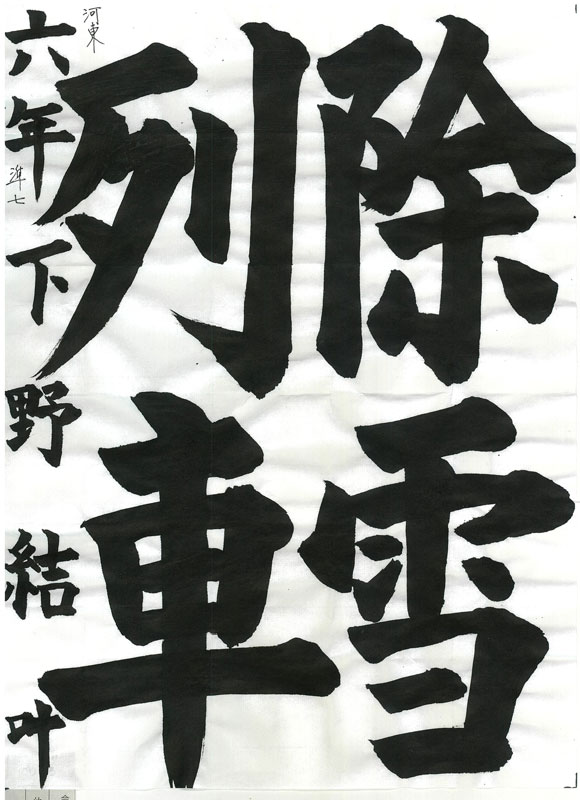 除雪
列車
河東
六年下野結叶
準七